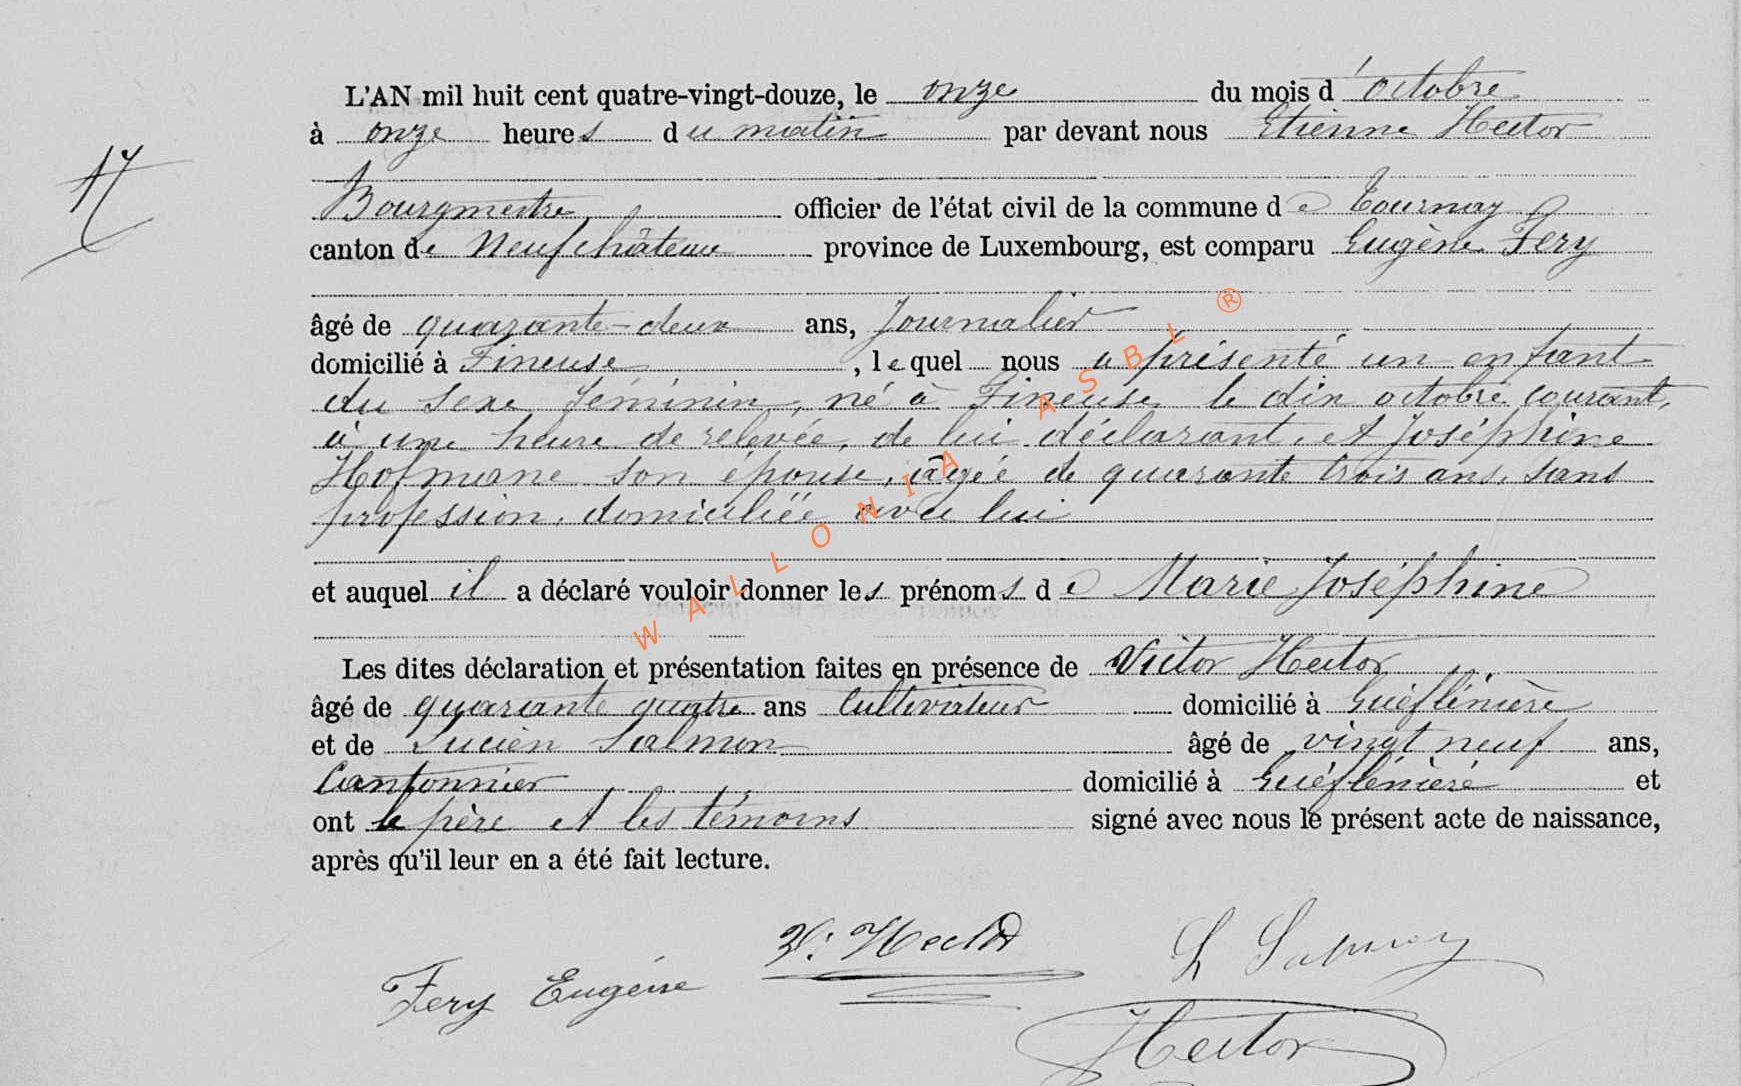 L'AN mil huit cent quatre-vingt-douze, le onze du mois d'octobre
à onze heures du matin par devant nous Etienne Hector
17
Bourgmestre, officier de l'état civil de la commune de Tournay
canton de Neufchâteau province de Luxembourg, est comparu Eugène Fery
âgé de quarante-deux ans, Journalier
domicilié à Fineuse, lequel nous a présenté un enfant
du sexe féminin, né à Fineuse le dix octobre courant,
à une heure de relevée, de lui déclarant, et Joséphine
Hofmane son épouse, âgée de quarante trois ans, sans
profession, domiciliée avec lui
et auquel il a déclaré vouloir donner les prénoms de Marie Joséphine
Les dites déclaration et présentation faites en présence de Victor Hector
âgé de quarante quatre ans Cultivateur domicilié à
et de Lucien Salmon âgé de vingt neuf ans,
Cantonnier domicilié à et
ont le père et les témoins signé avec nous le présent acte de naissance,
après qu'il leur en a été fait lecture.
V. Hector L Salmon
Fery Eugène
Hector
WALLONIA ASBL ®